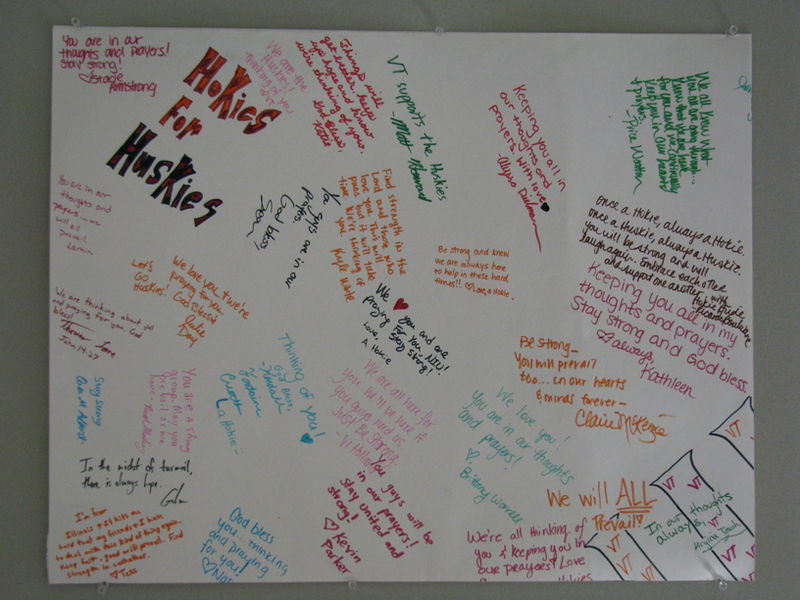 You are in our
thoughts and prayers!
Stay strong!
♡Stacie
Armstrong
Hokies
For
Huskies
We are the
Huskies!
thinking of you
Things will
get better. Keep
up hope and know
we're thinking of you.
God Bless,
Katie
VT supports the Huskies
-Matt
Keeping you all in
our thoughts and
prayers. With love♥
We all know what
you all are going through...
Know that we are here
for you and we continually
keep you in our hearts
+ prayers.
-Price
Once a Hokie, always a Hokie.
Once a Huskie, always a Huskie.
you will be strong and will
laugh again. Embrace each other
and support one another. with
Hokie Pride,
Keeping you all in my
thoughts and prayers.
Stay strong and God bless.
♡always,
Kathleen
You are in our
thoughts and
prayers... we
will all
prevail
You guys are in our
prayers
God bless,
Sean
Find strength in the
Lord and those who
love you. This will
pass but it will take
time. We're thinking of
you. Kyle
Be strong and know
we are always here
to help in these hard
times!! ♡Love, a Hokie.
Let's
GO
Huskies!
We love you + we're
praying for you.
God bless
We are thinking about you
and praying for you. God
bless!
John 14:27
We ♥ you and are
praying For you, NIU!
Stay strong!
Love,
A Hokie
Be strong-
You will prevail
too... in our hearts
& minds forever-
Claire McKenzie
Thinking of you!
God Bless,
♥
-a Hokie-
We are all here for
you. We'll be here if
you guys need us
Just Be Strong.
VT
We love you!
You are in our thoughts
and prayers!
♡
Brittany
Stay strong
You are a strong
group. May you
In the midst of turmoil,
there is always hope.
You guys will be
in our prayers!
Stay united and
strong!
♡ Kevin
Parker
We will ALL
Prevail!
In our thoughts
always,
Virginia Tech
VT
VT
VT
VT
VT
VT
VT
I'm from
Illinois + it hits me
hard that my friends + I have
to deal with this kind of thing again.
Keep faith - good will prevail. Find
strength in eachother.
♡Tess
God bless
you... thinking
and praying
for you!
♡Nat
We're all thinking of
you & keeping you in
our prayers! Love